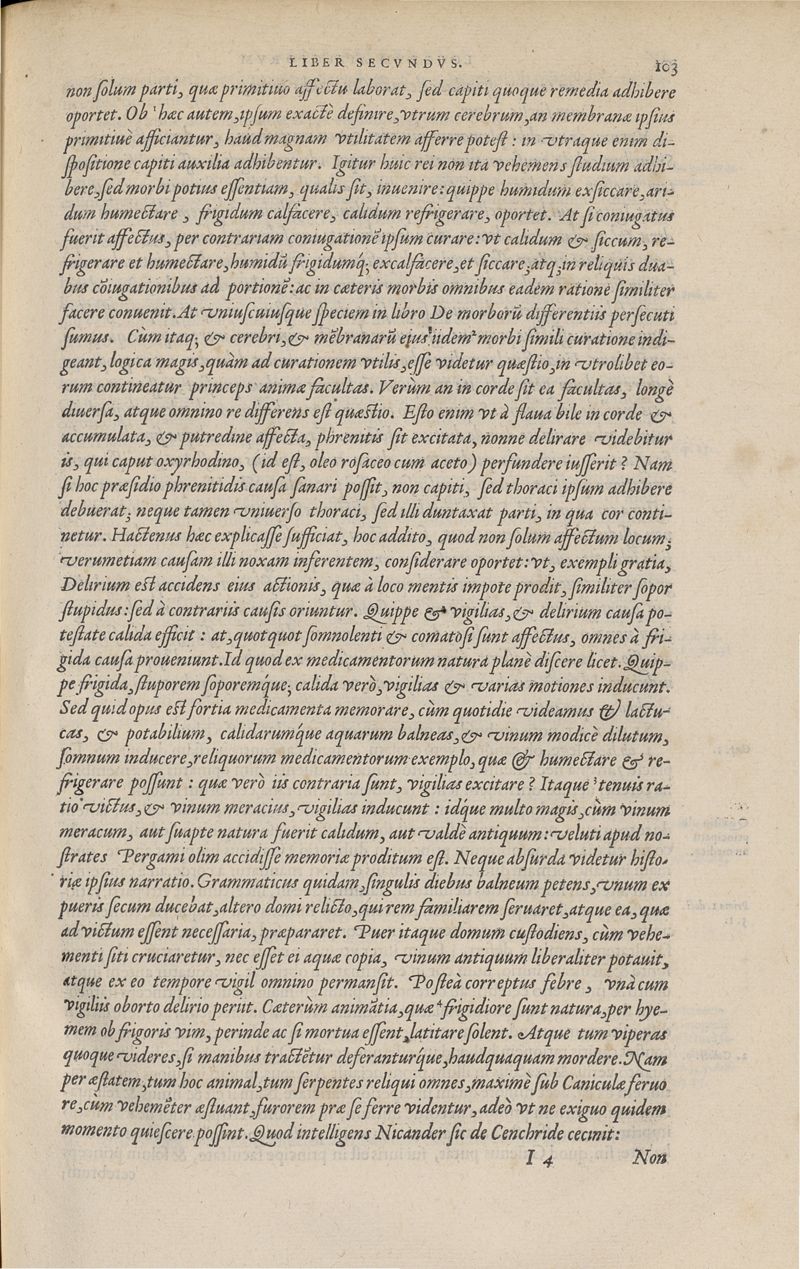 LIBER SECVNDVS. 103
non ſolum parti, quæ primitiuo affectu laborat, ſed capiti quoque remedia adhibere
oportet. Ob ¹hæc autem, ipſum exactè definire, vtrum cerebrum, an membranæ ipſius
primitiuè afficiantur, haud magnam vtilitatem afferre poteſt: in vtraque enim di-
ſpoſitione capiti auxilia adhibentur. Igitur huic rei non ita vehemens ſtudium adhi-
bere, ſed morbi potius eſſentiam, qualis ſit, inuenire: quippe humidum exſiccare, ari-
dum humectare, frigidum calfacere, calidum refrigerare, oportet. At ſi coniugatus
fuerit affectus, per contrariam coniugationē ipſum curare: vt calidum & ſiccum, re-
frigerare et humectare, humidū frigidumq́; excalfacere, et ſiccare, atq; in reliquis dua-
bus cōiugationibus ad portionē: ac in cæteris morbis omnibus eadem ratione ſimiliter
facere conuenit. At vniuſcuiuſque ſpeciem in libro De morborū differentiis perſecuti
ſumus. Cùm itaq; & cerebri, & mēbranarū eius iidem ²morbi ſimili curatione indi-
geant, logica magis, quàm ad curationem vtilis, eſſe videtur quæſtio, in vtrolibet eo-
rum contineatur princeps animæ facultas. Verùm an in corde ſit ea facultas, longè
diuerſa, atque omnino re differens eſt quæſtio. Eſto enim vt à flaua bile in corde &
accumulata, & putredine affecta, phrenitis ſit excitata, nonne delirare videbitur
is, qui caput oxyrhodino, (id eſt, oleo roſaceo cum aceto) perfundere iuſſerit? Nam
ſi hoc præſidio phrenitidis cauſa ſanari poſſit, non capiti, ſed thoraci ipſum adhibere
debuerat; neque tamen vniuerſo thoraci, ſed illi duntaxat parti, in qua cor conti-
netur. Hactenus hæc explicaſſe ſufficiat, hoc addito, quod non ſolum affectum locum;
verumetiam cauſam illi noxam inferentem, conſiderare oportet: vt, exempli gratia,
Delirium eſt accidens eius actionis, quæ à loco mentis impote prodit, ſimiliter ſopor
ſtupidus: ſed à contrariis cauſis oriuntur. Quippe & vigilias, & delirium cauſa po-
teſtate calida efficit: at, quotquot ſomnolenti & comatoſi ſunt affectus, omnes à fri-
gida cauſa proueniunt. Id quod ex medicamentorum natura planè diſcere licet. Quip-
pe frigida, ſtuporem ſoporemq́ue; calida verò, vigilias & varias motiones inducunt.
Sed quid opus eſt fortia medicamenta memorare, cùm quotidie videamus & lactu-
cas, & potabilium, calidarumq́ue aquarum balneas, & vinum modicè dilutum,
ſomnum inducere, reliquorum medicamentorum exemplo, quæ & humectare & re-
frigerare poſſunt: quæ verò iis contraria ſunt, vigilias excitare? Itaque ³tenuis ra-
tio victus, & vinum meracius, vigilias inducunt: idq́ue multo magis, cùm vinum
meracum, aut ſuapte natura fuerit calidum, aut valdè antiquum: veluti apud no-
ſtrates Pergami olim accidiſſe memoriæ proditum eſt. Neque abſurda videtur hiſto-
riæ ipſius narratio. Grammaticus quidam, ſingulis diebus balneum petens, vnum ex
pueris ſecum ducebat, altero domi relicto, qui rem familiarem ſeruaret, atque ea, quæ
ad victum eſſent neceſſaria, præpararet. Puer itaque domum cuſtodiens, cùm vehe-
menti ſiti cruciaretur, nec eſſet ei aquæ copia, vinum antiquum liberaliter potauit,
atque ex eo tempore vigil omnino permanſit. Poſteà correptus febre, vnà cum
vigiliis oborto delirio periit. Cæterùm animātia, quæ ⁴frigidiore ſunt natura, per hye-
mem ob frigoris vim, perinde ac ſi mortua eſſent, latitare ſolent. Atque tum viperas
quoque videres, ſi manibus tractētur deferanturq́ue, haudquaquam mordere. Nam
per æſtatem, tum hoc animal, tum ſerpentes reliqui omnes, maximè ſub Caniculæ feruo
re, cùm vehemēter æſtuant, furorem præ ſe ferre videntur, adeò vt ne exiguo quidem
momento quieſcere poſſint. Quod intelligens Nicander ſic de Cenchride cecinit:
I 4 Non